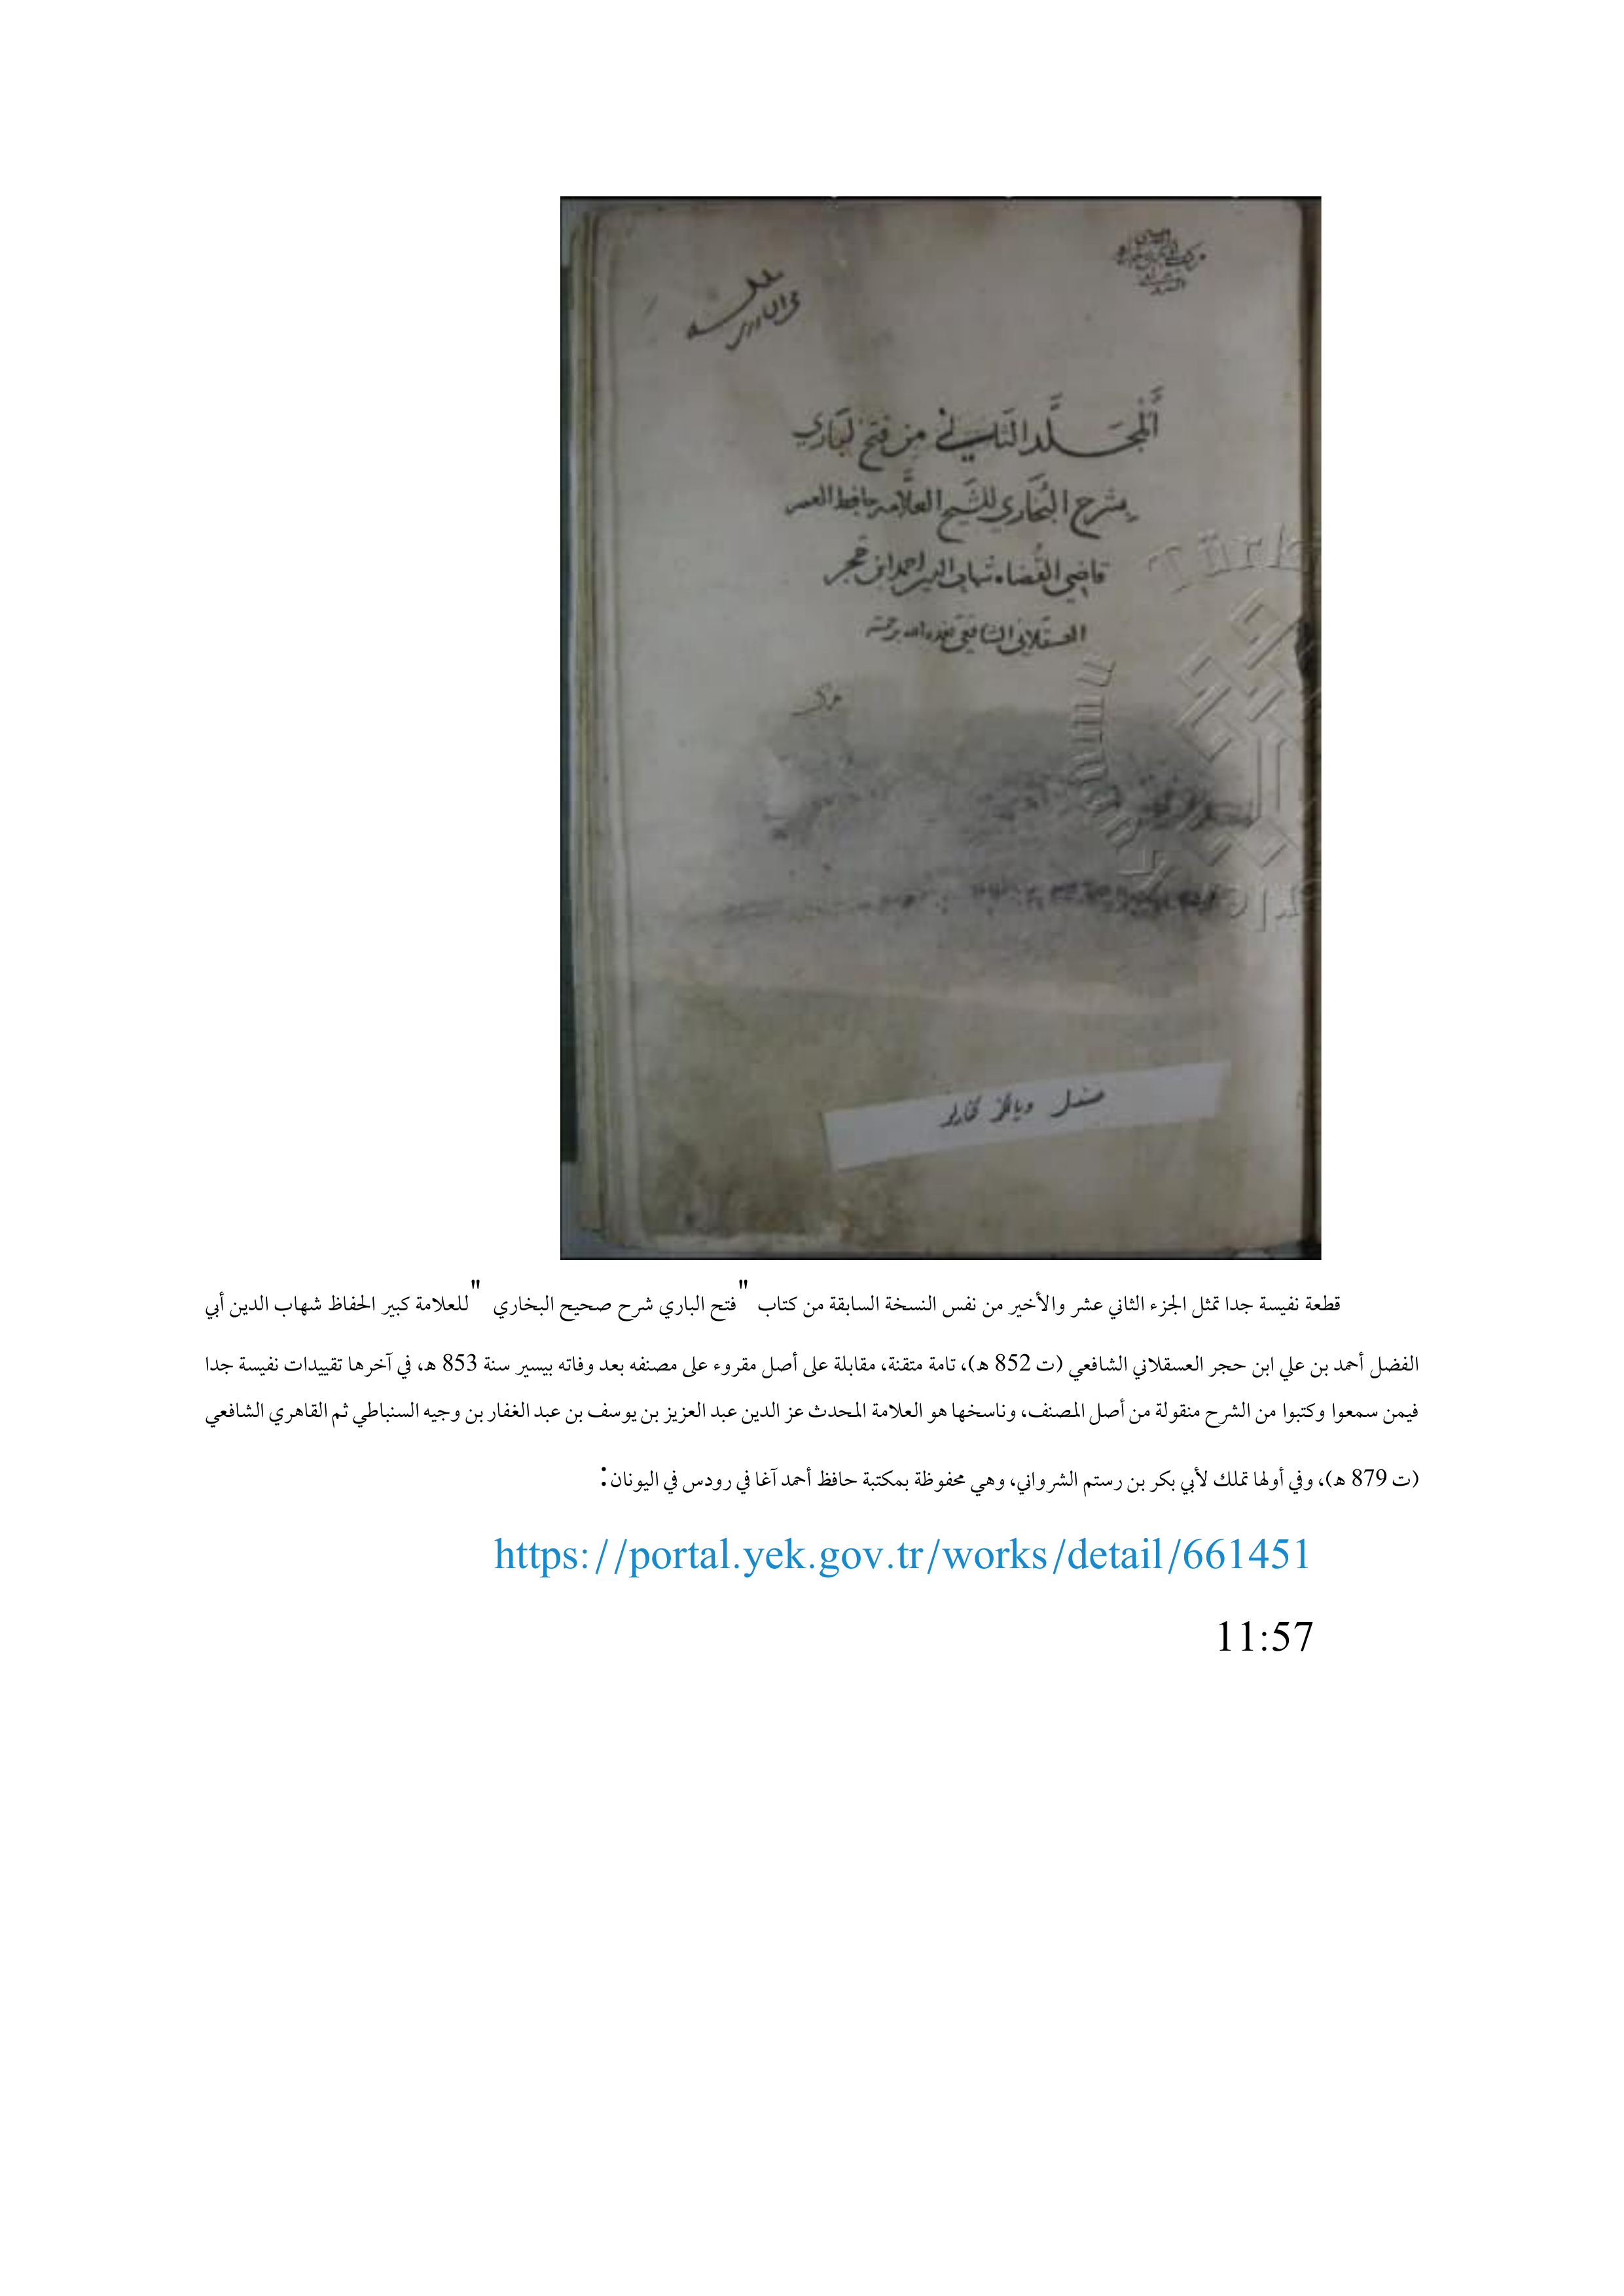 المجلد الثاني من فتح الباري
بشرح البخاري للشيخ العلامة حافظ العصر
قاضي القضاه شهاب الدين احمد ابن حجر
العسقلاني الشافعي تغمده الله برحمته
قطعة نفيسة جدا تمثل الجزء الثاني عشر والأخير من نفس النسخة السابقة من كتاب "فتح الباري شرح صحيح البخاري " للعلامة كبير الحفاظ شهاب الدين أبي
الفضل أحمد بن علي ابن حجر العسقلاني الشافعي (ت 852 هـ)، تامة متقنة، مقابلة على أصل مقروء على مصنفه بعد وفاته بيسير سنة 853 هـ، في آخرها تقييدات نفيسة جدا
فيمن سمعوا وكتبوا من الشرح منقولة من أصل المصنف، وناسخها هو العلامة المحدث عز الدين عبد العزيز بن يوسف بن عبد الغفار بن وجيه السنباطي ثم القاهري الشافعي
(ت 879 هـ)، وفي أولها تملك لأبي بكر بن رستم الشرواني، وهي محفوظة بمكتبة حافظ أحمد آغا في رودس في اليونان:
https://portal.yek.gov.tr/works/detail/661451
11:57